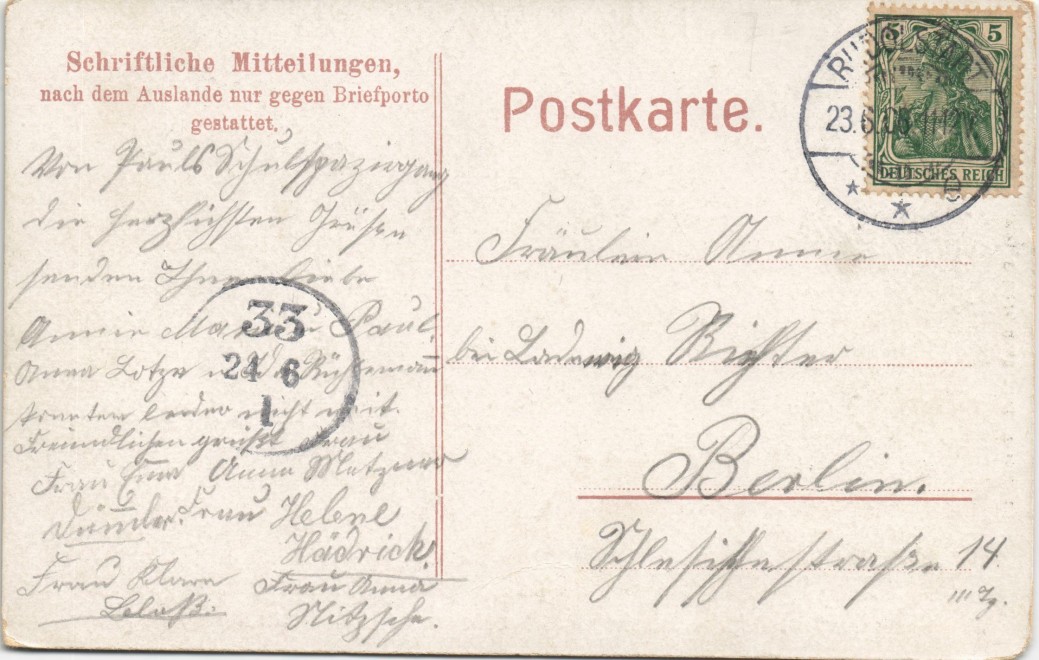 Schriftliche Mitteilungen,
nach dem Auslande nur gegen Briefporto
gestattet.
Postkarte.
5 5
DEUTSCHES REICH
RUDOLSTADT
23.6.
Von Pauls Schulspaziergang
die herzlichsten Grüße
senden Ihnen liebe
Annie Paul.
Anna Lotze
leider nicht mit.
Freundlichen grüßt Frau
Frau Anna Metzner
Frau Helene
Hädrich.
Frau Klara Frau Anna
Nitzsche.
33
24 6
1
Fräulein Anna
bei Ludewig Richter
Berlin.
Schlesischestraße 14.